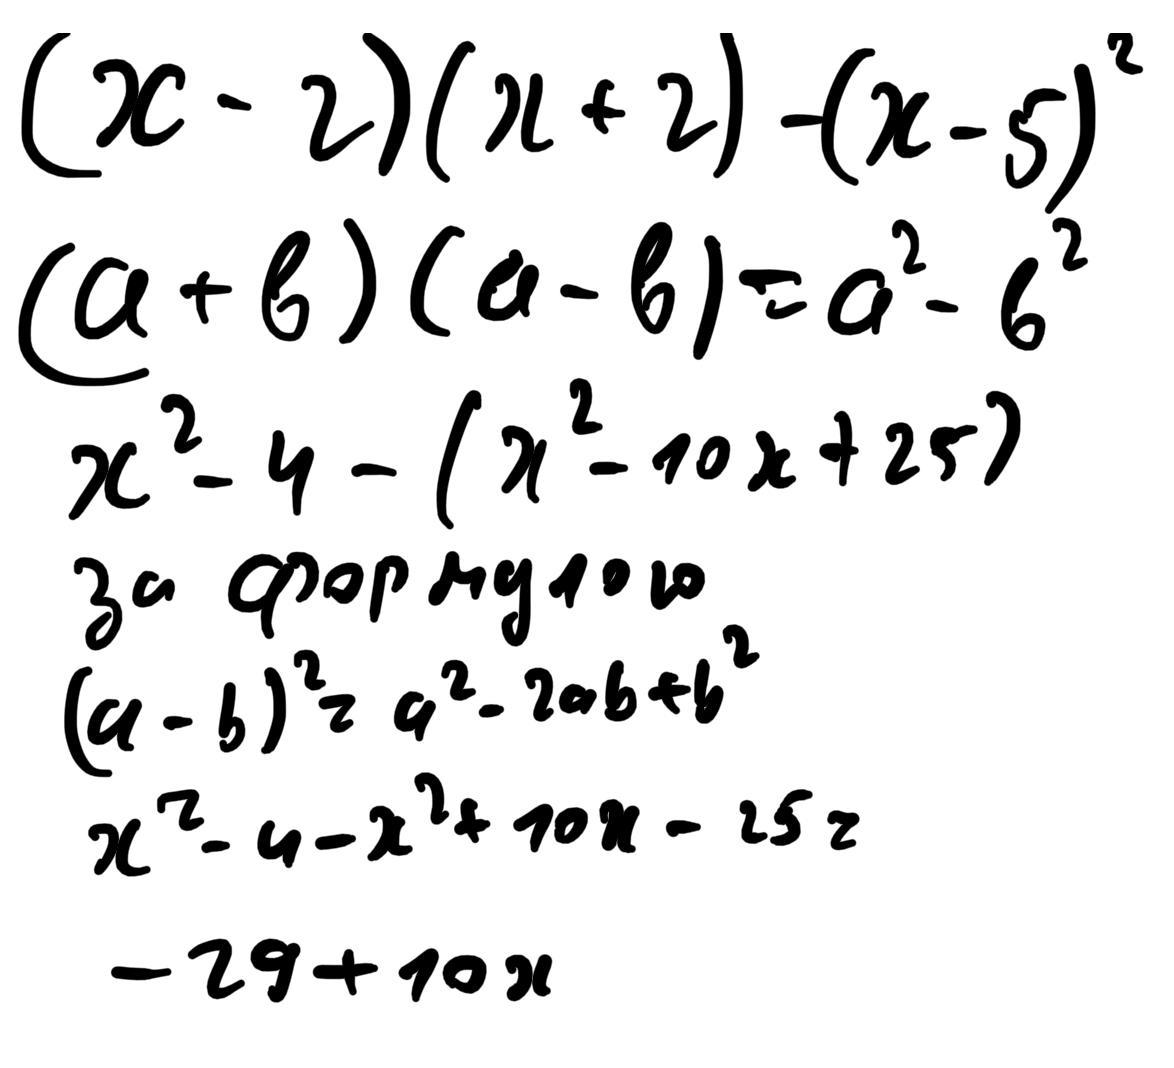 (x - 2)(x + 2) - (x - 5)²
(a + b)(a - b) = a² - b²
x² - 4 - (x² - 10x + 25)
за формулою
(a - b)² = a² - 2ab + b²
x² - 4 - x² + 10x - 25 =
- 29 + 10x